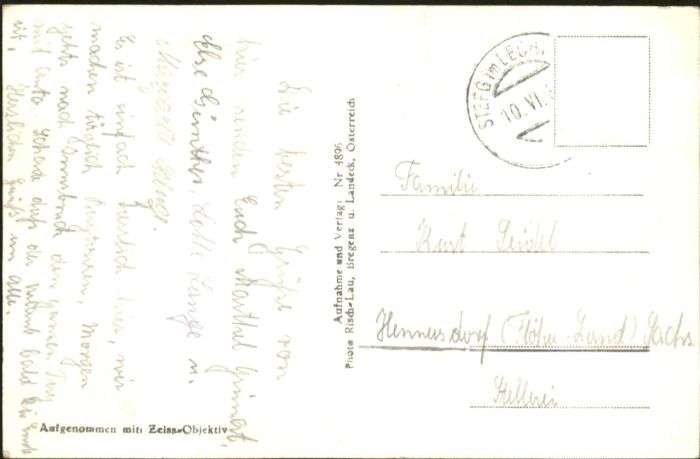 Die besten Grüße von
hier senden Euch Marthel Grünert,
Else Günther Lotte Lange u.
Es ist einfach herrlich hier, wir
machen täglich Morgen
gehts nach Innsbruck den ganzen Tag
mit Auto Schade daß der Urlaub bald zu Ende
ist, Herzlichen Gruß an alle.
Aufgenommen mit: Zeiss-Objektiv
Aufnahme und Verlag: Nr 4896
Photo Risch-Lau, Bregenz u. Landeck, Österreich
STEEG im LECH
10. VI.
Familie
Kurt Seidel
Hennersdorf Sachs